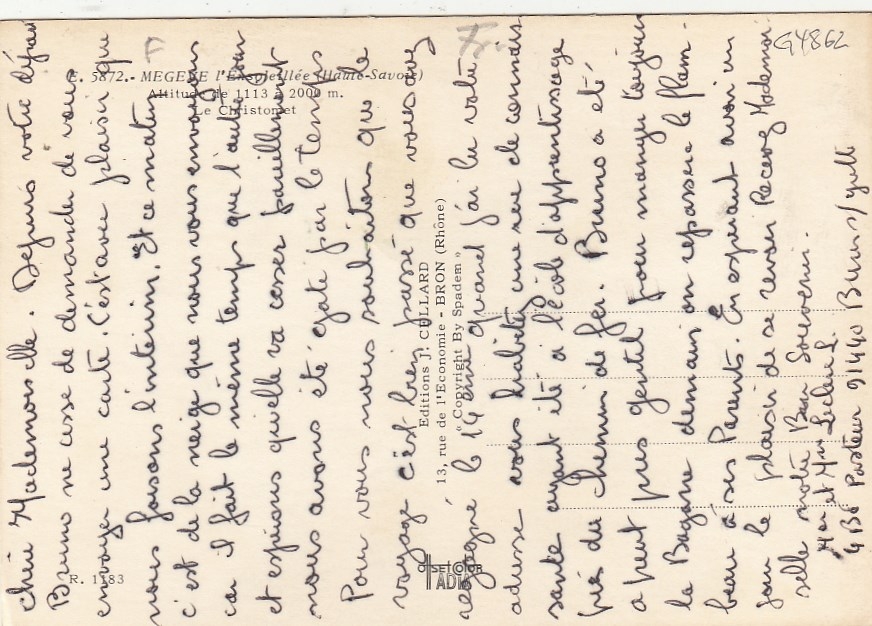 E. 5872. - MEGEVE l'Ensoleillée (Haute-Savoie)
Altitude de 1113 à 2000 m.
Le Christomet
G4862
Editions J. CELLARD
13, rue de l'Economie - BRON (Rhône)
" Copyright By Spadem "
R. 1183
OFFSETCOLOR
ADIA
chère Mademoiselle. Depuis votre dépar
Bruno ne cesse de demander de vous
envoyer une carte. C'est avec plaisir que
nous faisons l'interim. Et ce matin
c'est de la neige que nous vous envoyons
car il fait le même temps que l'autre jour
et espérons qu'elle va cesser pareillement
nous avons été gaté par le temps
Pour vous nous souhaitons que le
voyage c'est bien passé que vous avez
regagné le 14 ème quand j'ai lu votre
adresse vous habitez une rue de connais
sante ayant été à l'école d'apprentissage
près du chemin de fer. Bruno a été
a peut près gentil pour manger toujours
la Bagarre demain on repassera le flam-
beau à ses Parents. En espérant avoir un
jour le plaisir de se revoir Recevez Mademoi
selle notre Bon Souvenir.
Mr et Mme Leclerc L.
Pasteur 91440 Bures s/ yvette